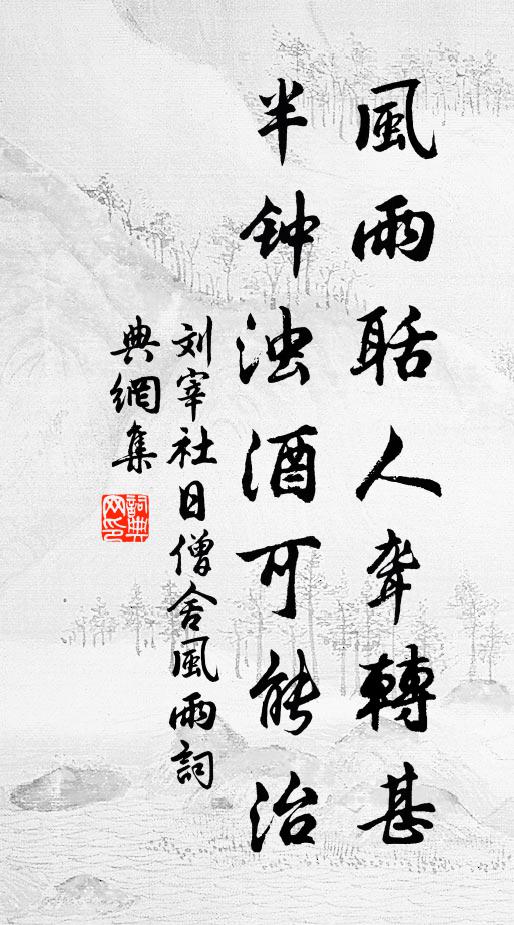 風雨聒人聾轉甚
半钟浊酒可能治
刘宰社日僧舍風雨詞
典網集
詞典
网印